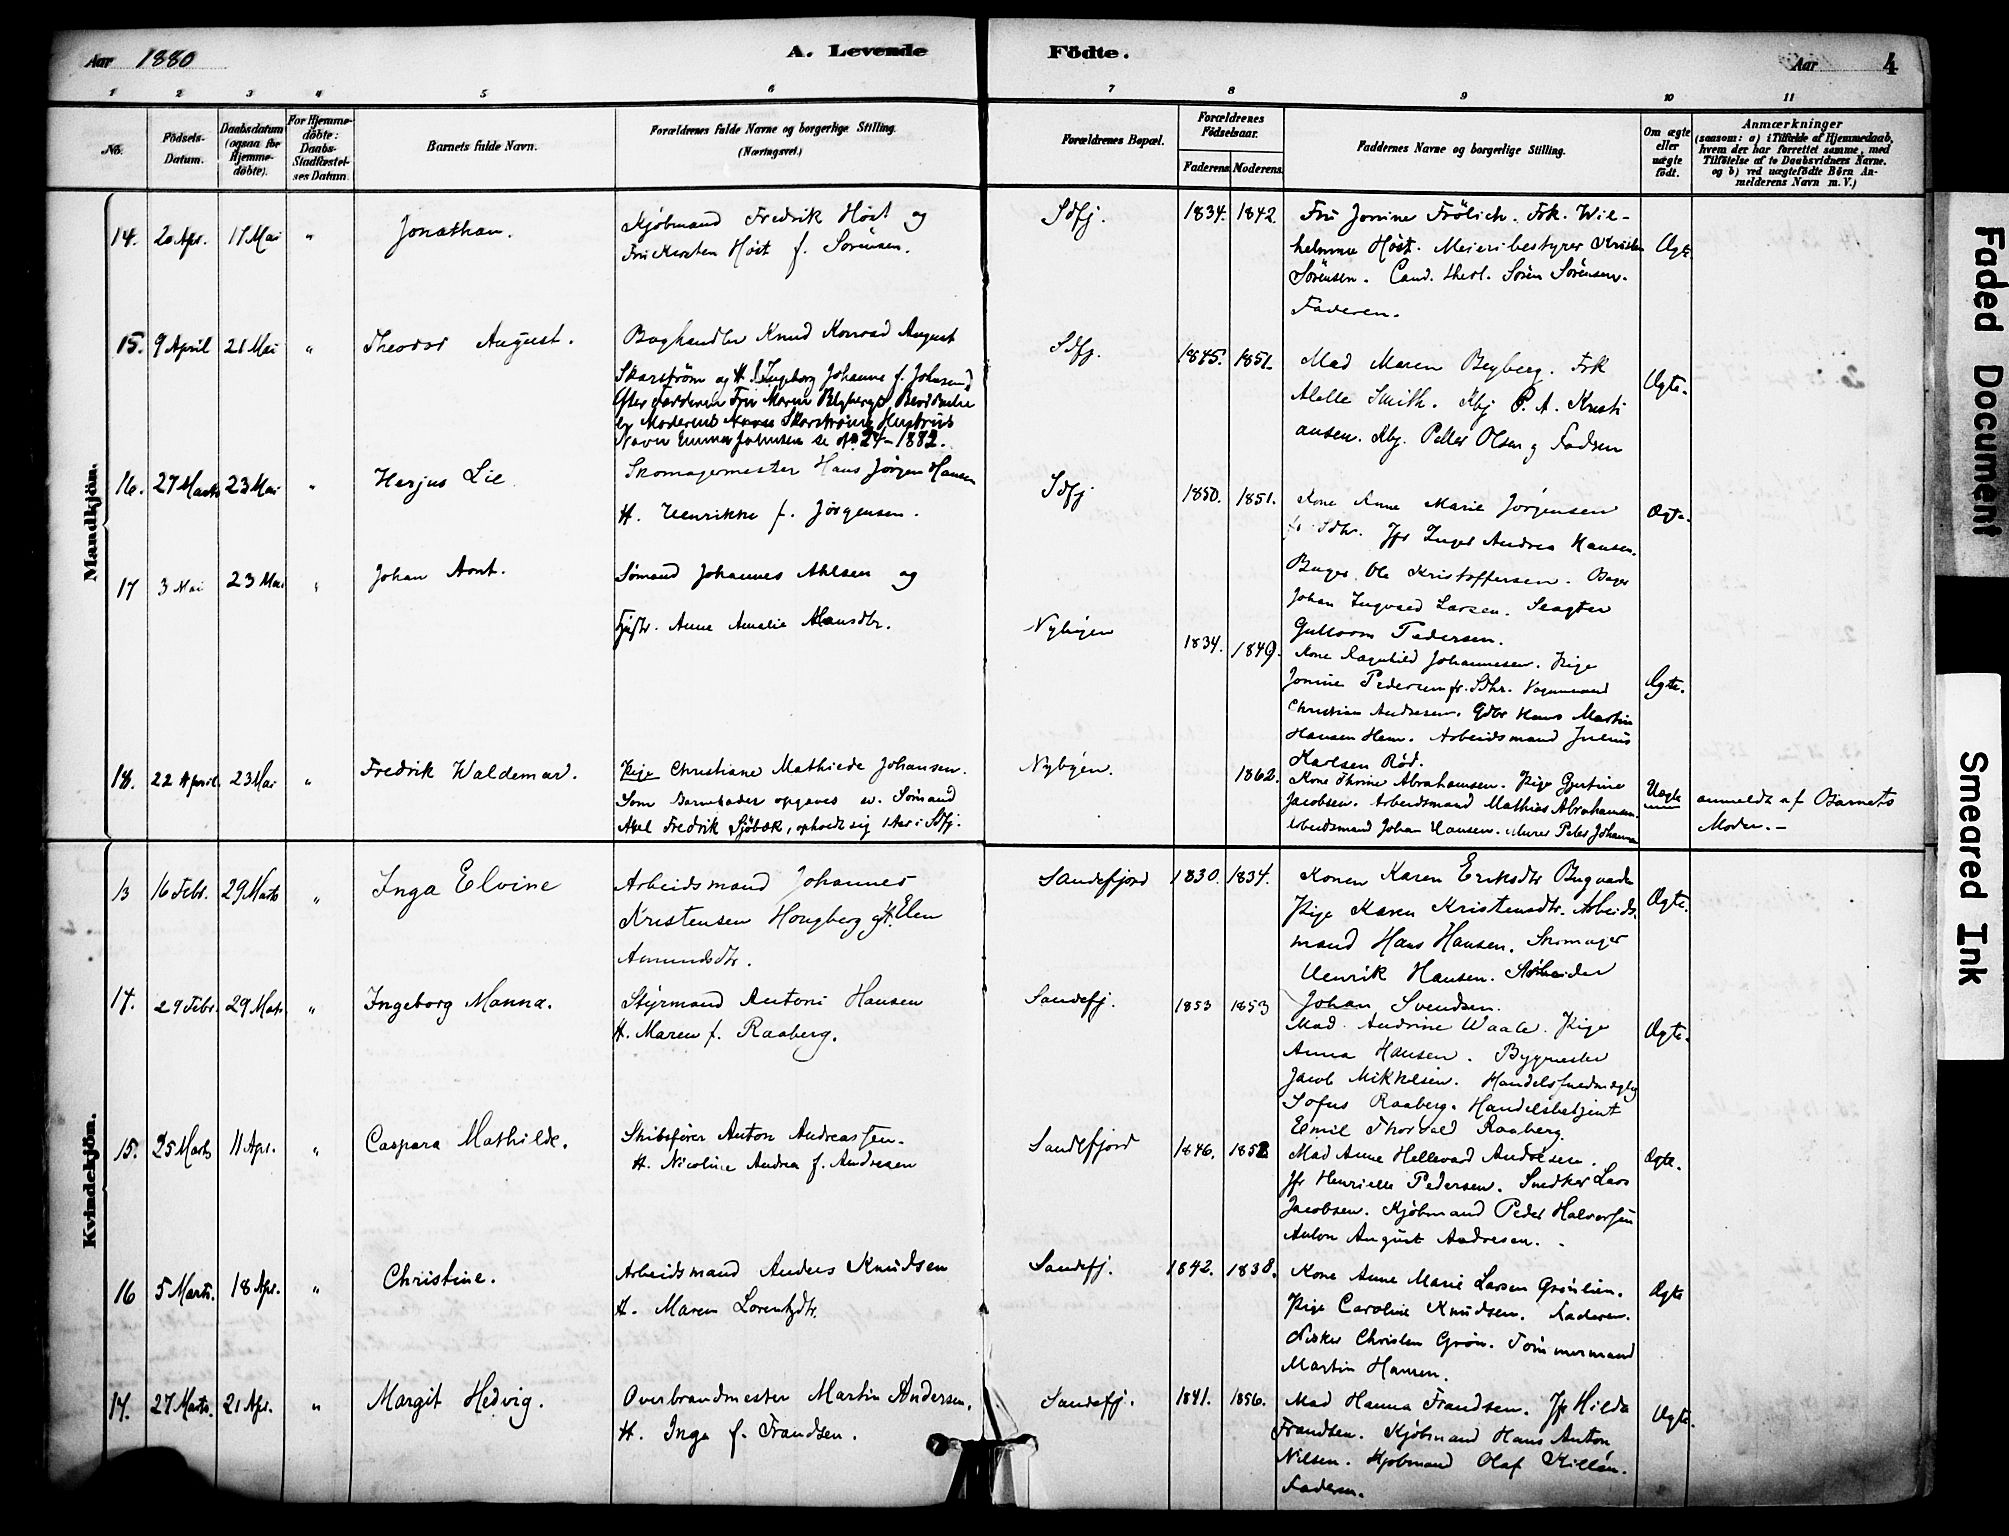 Aar 1880
A. Levende
Födte.
Aar
4
1 2 3 4 5 6 7 8 9 10 11
No.
Födsels-
Datum.
Daabsdatum
(ogsaa for
Hjemme-
döbte).
For Hjemme-
döbte:
Daabs-
Stadfæstel-
ses Datum.
Barnets fulde Navn.
Forældrenes fulde Navne og borgerlige Stilling.
(Næringsvei.)
Forældrenes Bopæl.
Forældrenes
Födselsaar.
Faderens Moderens
Faddernes Navne og borgerlige Stilling.
Om ægte
eller
uægte
födt.
Anmærkninger
(saasom: a) i Tilfælde af Hjemmedaab,
hvem der har forrettet samme, med
Tilföielse af to Daabsvidners Navne.
og b) ved uægtefödte Börn An-
melderens Navn m. V.)
Mandkjön.
14. 20 Apr. 17 Mai " Jonathan.
Kjöbmand Fredrik Höst og
Fru Kirsten Höst f. Sörensen.
Sdfj. 1834. 1842
Fru Jonine Frölich. Frk. Wil-
helmine Höst. Meieribestyrer Kristen
Sörensen. Cand. theol. Sören Sörensen.
Faderen.
Ægte
15. 9 April 21 Mai " Theodor August.
Boghandler Knud Konrad August
Skarström og H. Ingeborg Johanne f. Johnsen
Efter Fadderen Fru Maren Bryberg's
Moderens Navn Skarströms Hustrus
Navn Emma Johnsen se No 24 - 1882.
Sdfj. 1845. 1851.
Mad Maren Bryberg. Frk
Alette Smith. Kbj P. A. Kristi
ansen. Kbj. Petter Olsen og Fadren
Ægte.
16. 27 Marts 23 Mai " Herjus Lie
Skomagermester Hans Jörgen Hansen
H. Henrikke f. Jörgensen.
Sdfj 1850. 1851.
Kone Anne Marie Jörgensen
fr Sdhr. Jfr Inger Andrea Hansen.
Bager Ole Kristoffersen. Bager
Johan Ingvald Larsen. Slagter
Gulloom Pedersen.
Ægte.
17 3 Mai 23 Mai " Johan Arnt.
Sömand Johannes Ahlsen og
Hustr. Anne Amalie Hansdtr.
Nybyen 1834. 1849.
Kone Ragnhild Johannesen. Pige
Jonine Pedersen fr. Sdhr. Vognmand
Christian Andresen. Gdbr Hans Martin
Hansen Hem. Arbeidsmand Julius
Karlsen Röd.
Ægte.
18. 22 April 23 Mai " Fredrik Waldemar.
Pige Christiane Mathilde Johansen.
Som Barnefader opgives er. Sömand
Axel Fredrik Sjöbæk, opholdt sig 1 Aar i Sdfj.
Nybyen. 1862.
Kone Thorine Abrahamsen. Pige Gjertine
Jacobsen. Arbeidsmand Mathias Abrahamsen.
Arbeidsmand Johan Hansen. Murer Peter Johanns
Uægte
anmeldt af Barnets
Moder.-
Kvindekjön.
13 16 Febr. 29 Marts " Inga Elvine
Arbeidsmand Johannes
Kristensen Hougberg og H. Elen
Amundsdtr.
Sandefjord 1830. 1834.
Konen Karen Eriksdtr Bugaarden
Pige Karen Kristensdtr. Arbeids
mand Hans Hansen. Skomager
Henrik Hansen. Arbeider
Johan Svendsen.
Ægte.
14. 29 Febr. 29 Marts " Ingeborg Manna.
Styrmand Antoni Hansen
H. Maren f. Raaberg.
Sandefj. 1853 1853
Mad. Andrine Waale. Pige
Anna Hansen. Bygmester
Jacob Mikkelsen. Handelsfuldmægtig
Sofus Raaberg. Handelsbetjent
Emil Thorvald Raaberg.
Ægte.
15. 25 Marts 11 Apr. " Caspara Mathilde.
Skibsförer Anton Andreassen.
H. Nicoline Andrea f. Andresen
Sandefjord 1846. 1852
Mad Anne Hellevard Andresen.
Jfr Henriette Pedersen. Snedker Lars
Jacobsen. Kjöbmand Peder Halvorsen
Anton August Andresen.
Ægte.
16 5 Marts. 18 Apr. " Christine.
Arbeidsmand Anders Knudsen
H. Maren Lorentzdtr.
Sandefj. 1842. 1838.
Kone Anne Marie Larsen Grönlien.
Pige Caroline Knudsen. Faderen.
Fisker Christen Grön. Tömmermand
Martin Hansen.
Ægte
17. 27 Marts. 21 Apr. " Margit Hedvig.
Overbrandmester Martin Andersen.
H. Inga f. Frandsen.
Sandefj. 1841. 1856.
Mad Hanna Frandsen. Jfr Hilda
Frandsen. Kjöbmand Hans Anton
Nilsen. Kjöbmand Olaf Killén.
Faderen.
Ægte.
Faded Document
Smeared Ink